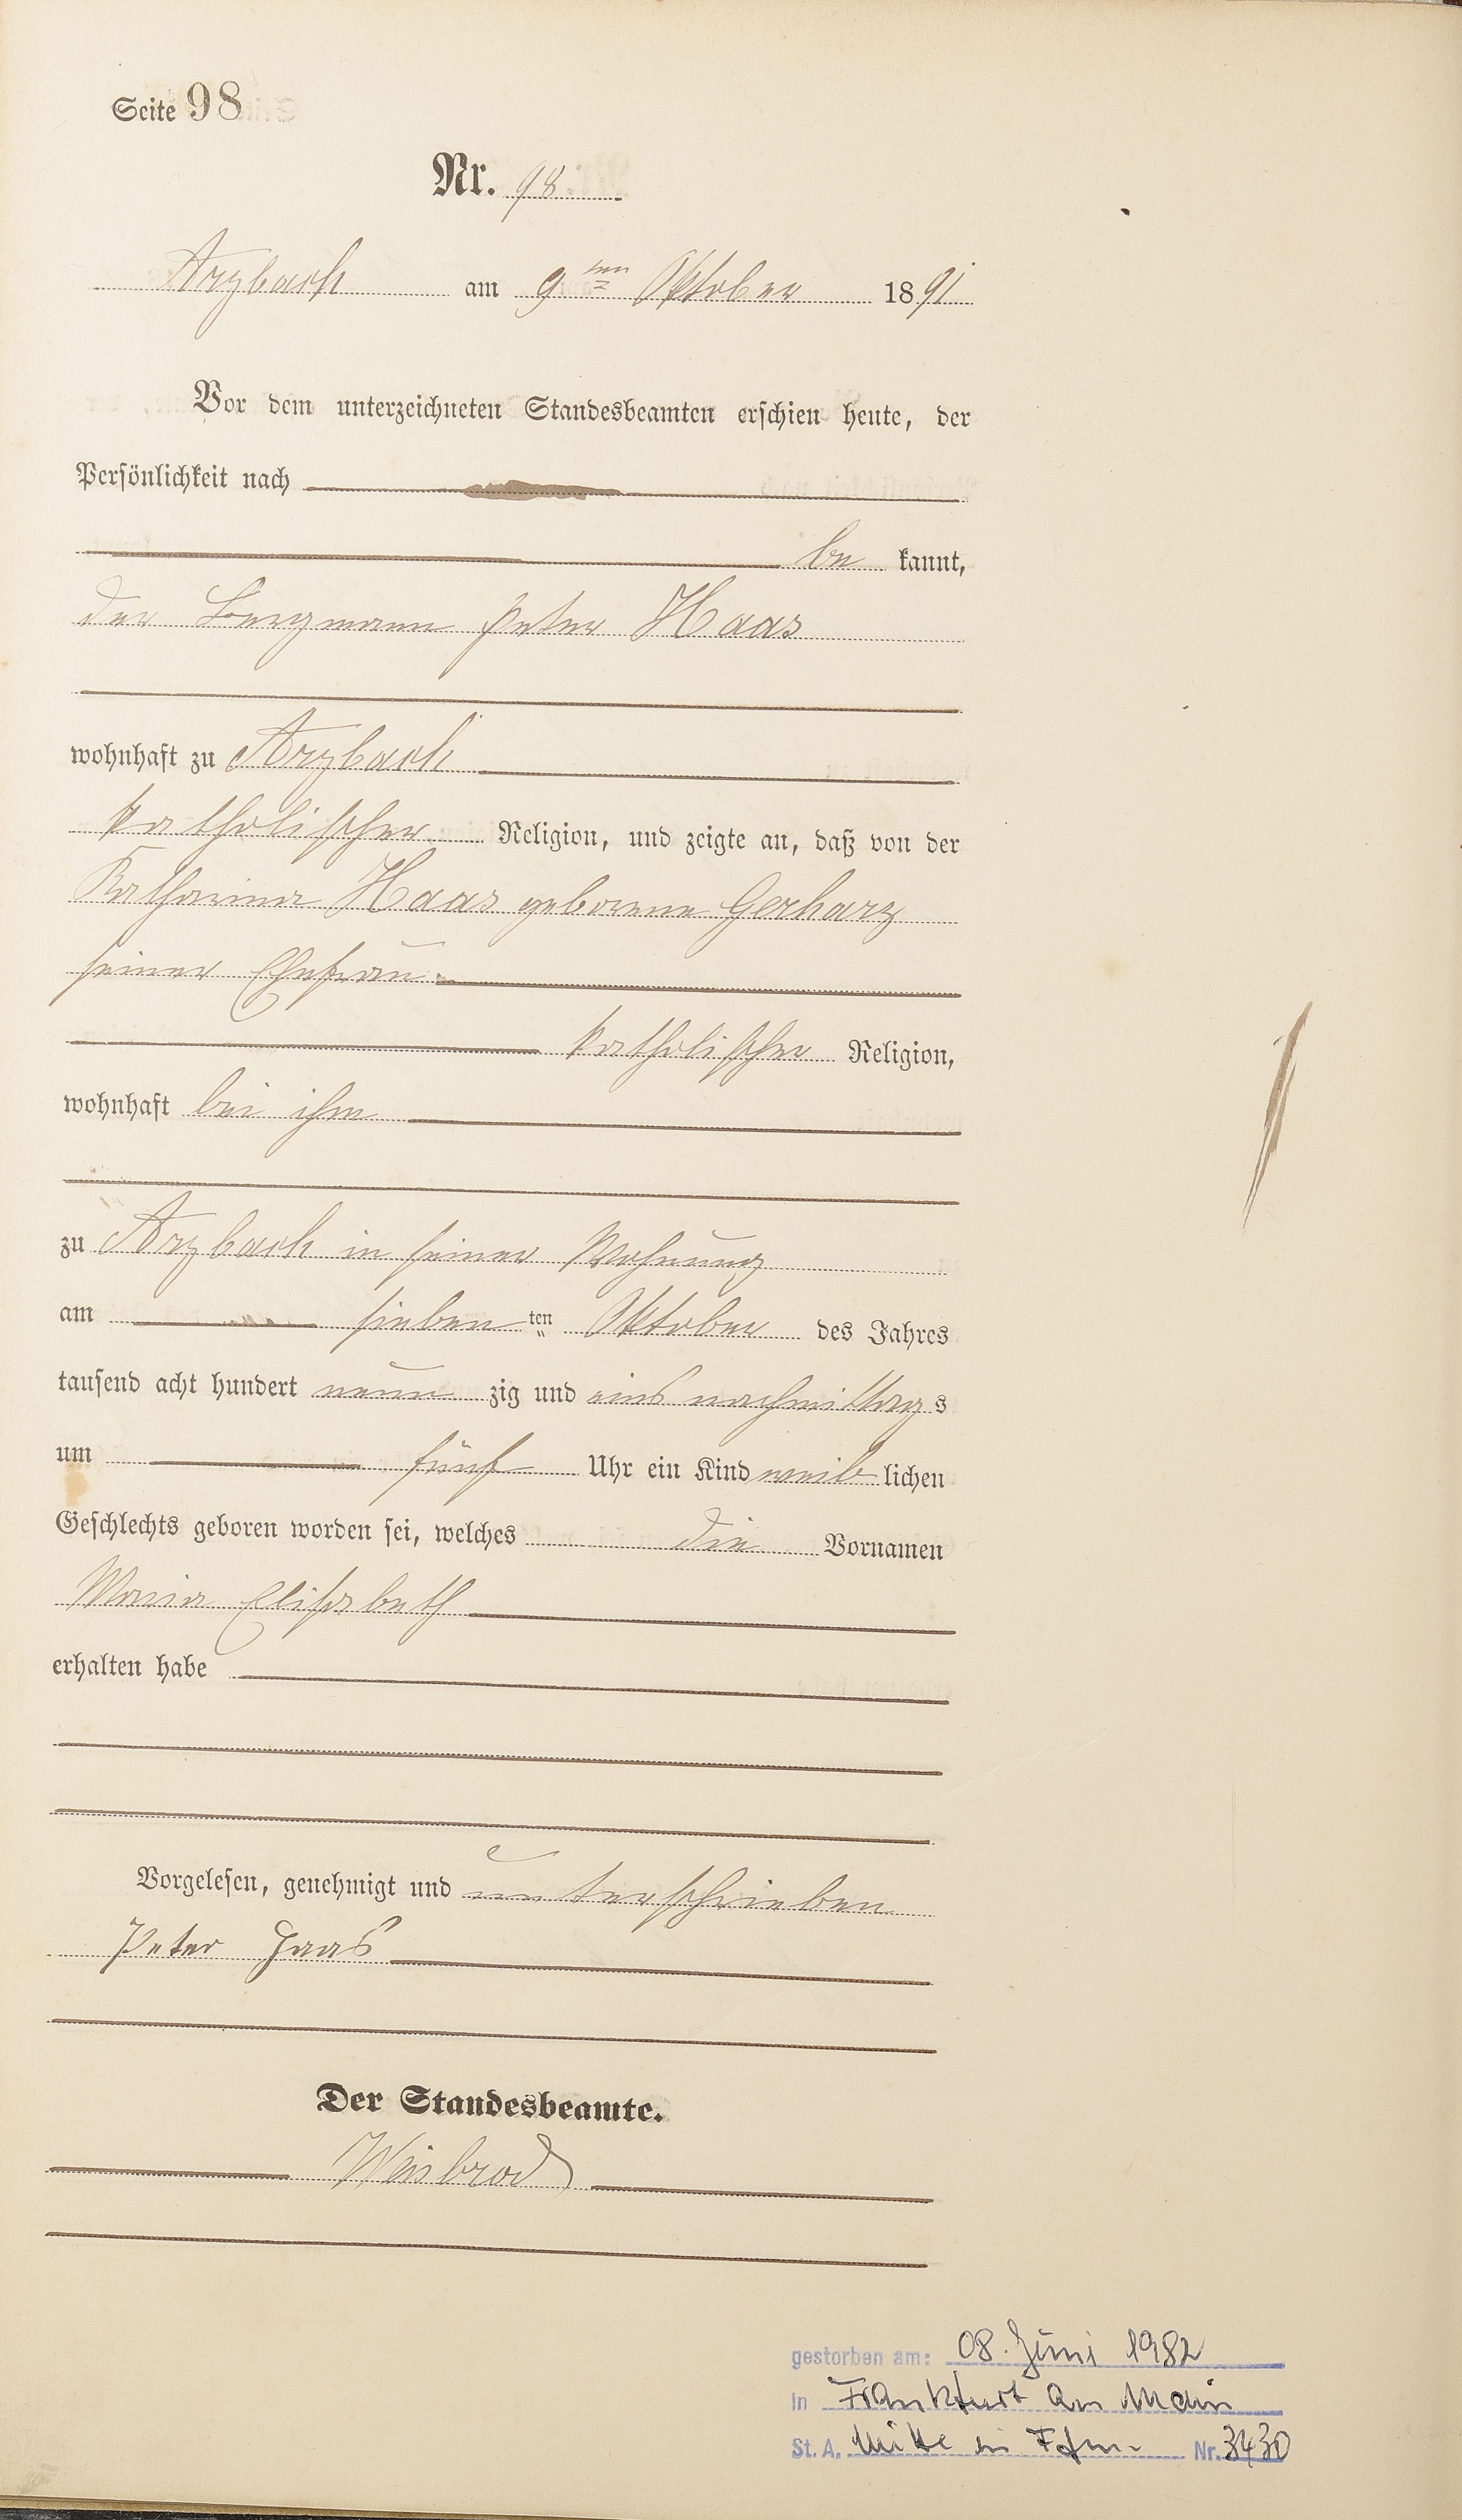 Seite 98
Nr. 98
Arzbach am 9ten Oktober 1891
Vor dem unterzeichneten Standesbeamten erschien heute, der
Persönlichkeit nach
be kannt,
der Bergmann Peter Haas
wohnhaft zu Arzbach
katholischer Religion, und zeigte an, daß von der
Katharina Haas geborene Gerharz
seiner Ehefrau
katholischer Religion,
wohnhaft bei ihm
zu Arzbach in seiner Wohnung
am sieben ten Oktober des Jahres
tausend acht hundert neun zig und eins nachmittags
um fünf Uhr ein Kind weib lichen
Geschlechts geboren worden sei, welches die Vornamen
Maria Elisabeth
erhalten habe
Vorgelesen, genehmigt und unterschrieben
Peter Haas
Der Standesbeamte.
Weisbrod
gestorben am: 08. Juni 1982
in Frankfurt am Main
St. A. Mitte in Ffm Nr. 3430